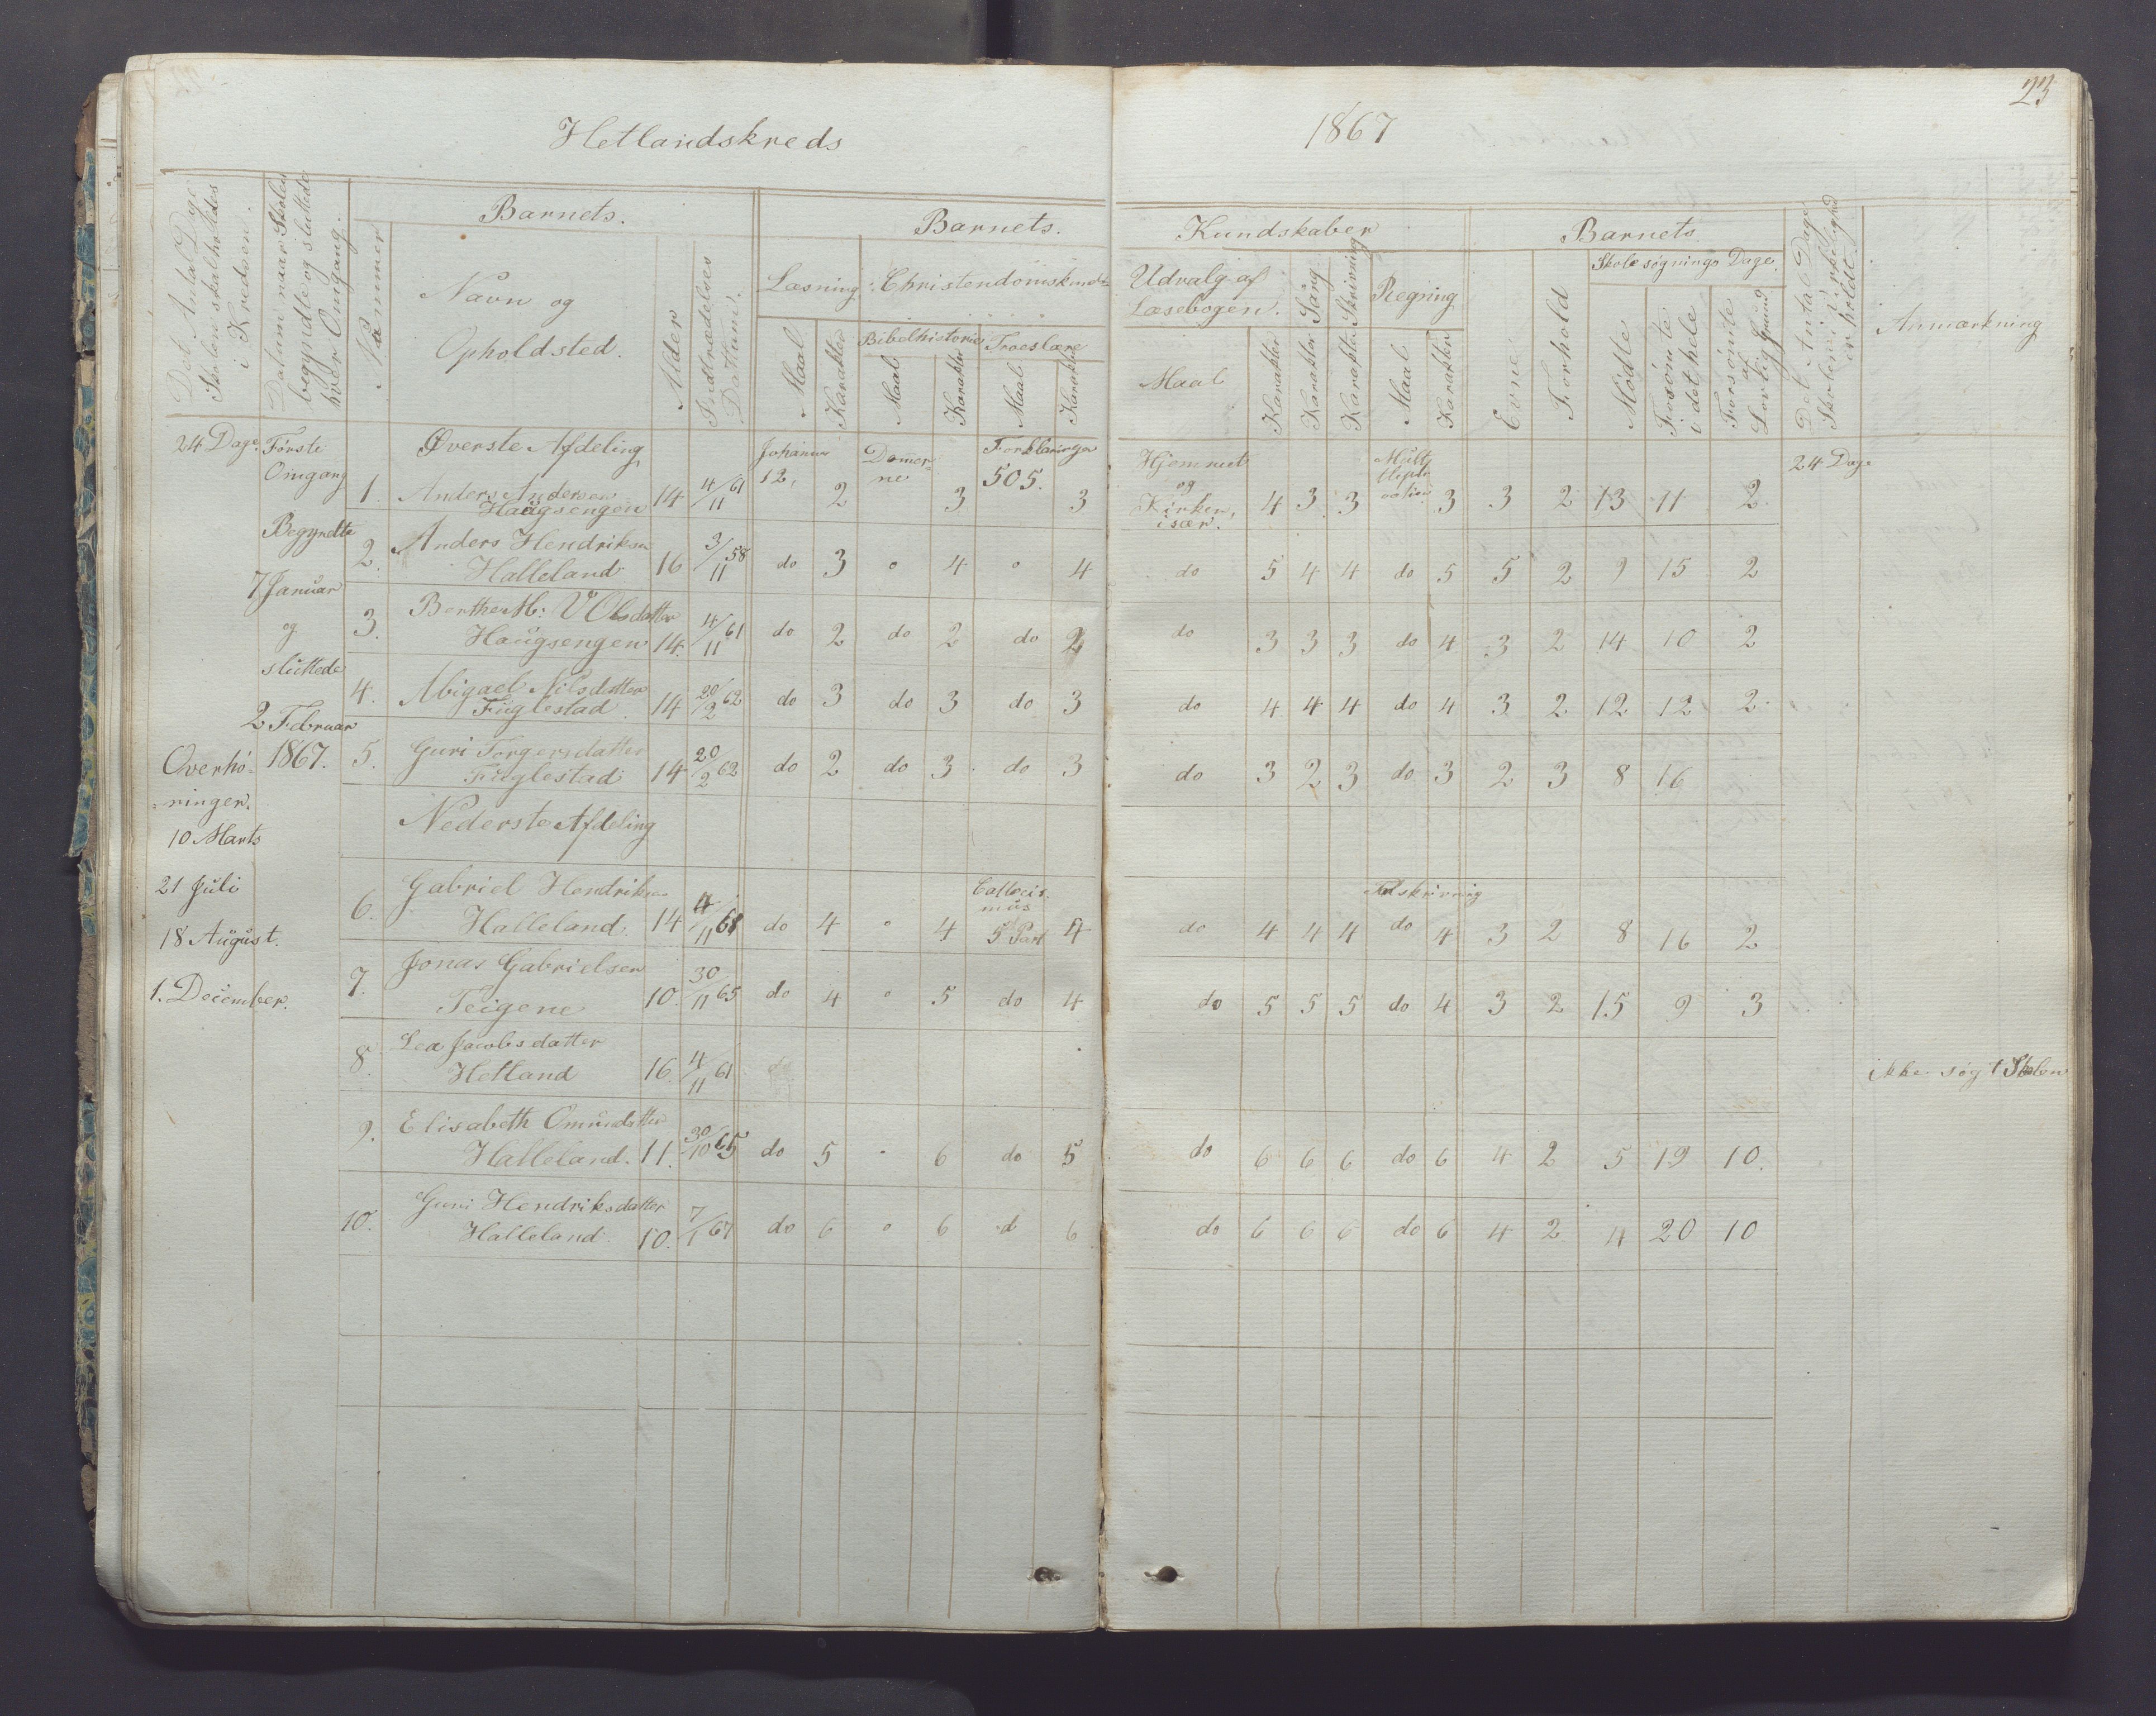 23
Hetlandskreds
1867
Det Antal Dage Skolen skal holdes i Kredsen.
Datum naar Skolen begyndte og sluttede hver Omgang.
Nummer
Barnets.
Navn og
Opholdsted.
Alder
Indtrædelses Dattum.
Barnets.
Kundskaber
Læsning. Christendomskund-
Maal Karakter
Bibelhistorie Troeslære
Maal Karakter Maal Karakter
Udvalg af
Læsebogen.
Maal Karakter
Sang Karakter
Skrivning Karakter
Regning
Maal Karakter
Barnets
Evne Forhold
Skolesøgnings Dage.
Mødte
Forsømte i det hele
Forsømte af Lovlig Grund
Det Antal Dage Skolen i Virkelighed er holdt.
Anmærkning
24 Dage. Første
Omgang
Begyndte
7 Januar
og
sluttede
2 Februar
1867.
Overhø-
-ringer.
10 Marts
21 Juli
18 August.
1. December.
Øverste Afdeling
1. Anders Andersen Haugsengen 14 4/11 61 Johannes 12, 2 Domer-ne 3 Forklaringen 505. 3 Hjemmet og Kirken, især. 4 3 3 Multiplication 3 3 2 13 11 2 24 Dage
2. Anders Hendriksen Halleland 16 3/11 58 do 3 " 4 " 4 do 5 4 4 do 5 5 2 9 15 2
3. Berthe M: V Olsdatter Haugsengen 14. 4/11 61 do 2 do 2 do 2 do 3 3 3 do 4 3 2 14 10 2
4. Abigael Nilsdatter Fuglestad 14 20/2 62 do 3 do 3 do 3 do 4 4 4 do 4 3 2 12 12 2
5. Guri Torgersdatter Fuglestad 14 20/2 62 do 2 do 3 do 3 do 3 2 3 do 3 2 3 8 16
Nederste Afdeling
6. Gabriel Hendriksen Halleland 14 4/11 61 do 4 " 4 Cattecismus 5 Part 4 do 4 4 4 Talskrivnig do 4 3 2 8 16 2
7. Jonas Gabrielsen Teigene 10. 30/11 65 do 4 " 5 do 4 do 5 5 5 do 4 3 2 15 9 3
8. Lea Jacobsdatter Hetland 16 4/11 61 ikke søgt Skolen
9. Elisabeth Omundsdatter Halleland. 11. 30/10 65 do 5 " 6 do 5 do 6 6 6 do 6 4 2 5 19 10.
10. Guri Hendriksdatter Halleland 10. 7/1 67 do 6 " 6 d 6 do 6 6 6 do 6 4 2 4 20 10